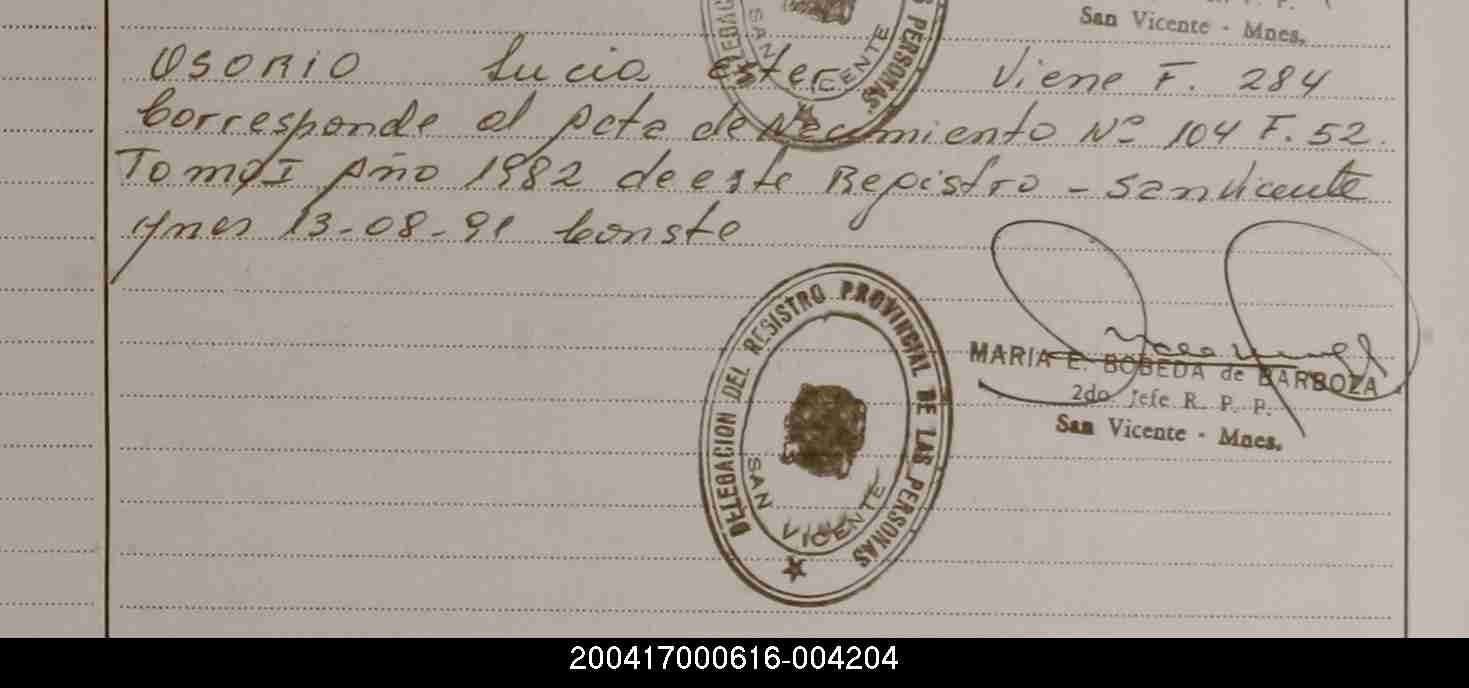 San Vicente - Mnes.
OSORIO Lucia ester Viene F. 284
Corresponde al Acta de Nacimiento Nº 104 F. 52.
Tomo I Año 1982 de este Registro - San Vicente
Mnes 13-08-91 Conste
DELEGACION DEL REGISTRO PROVINCIAL DE LAS PERSONAS
SAN VICENTE
MARIA E. BOBEDA de BARBOZA
2do. Jefe R. P. P.
San Vicente - Mnes.
200417000616-004204